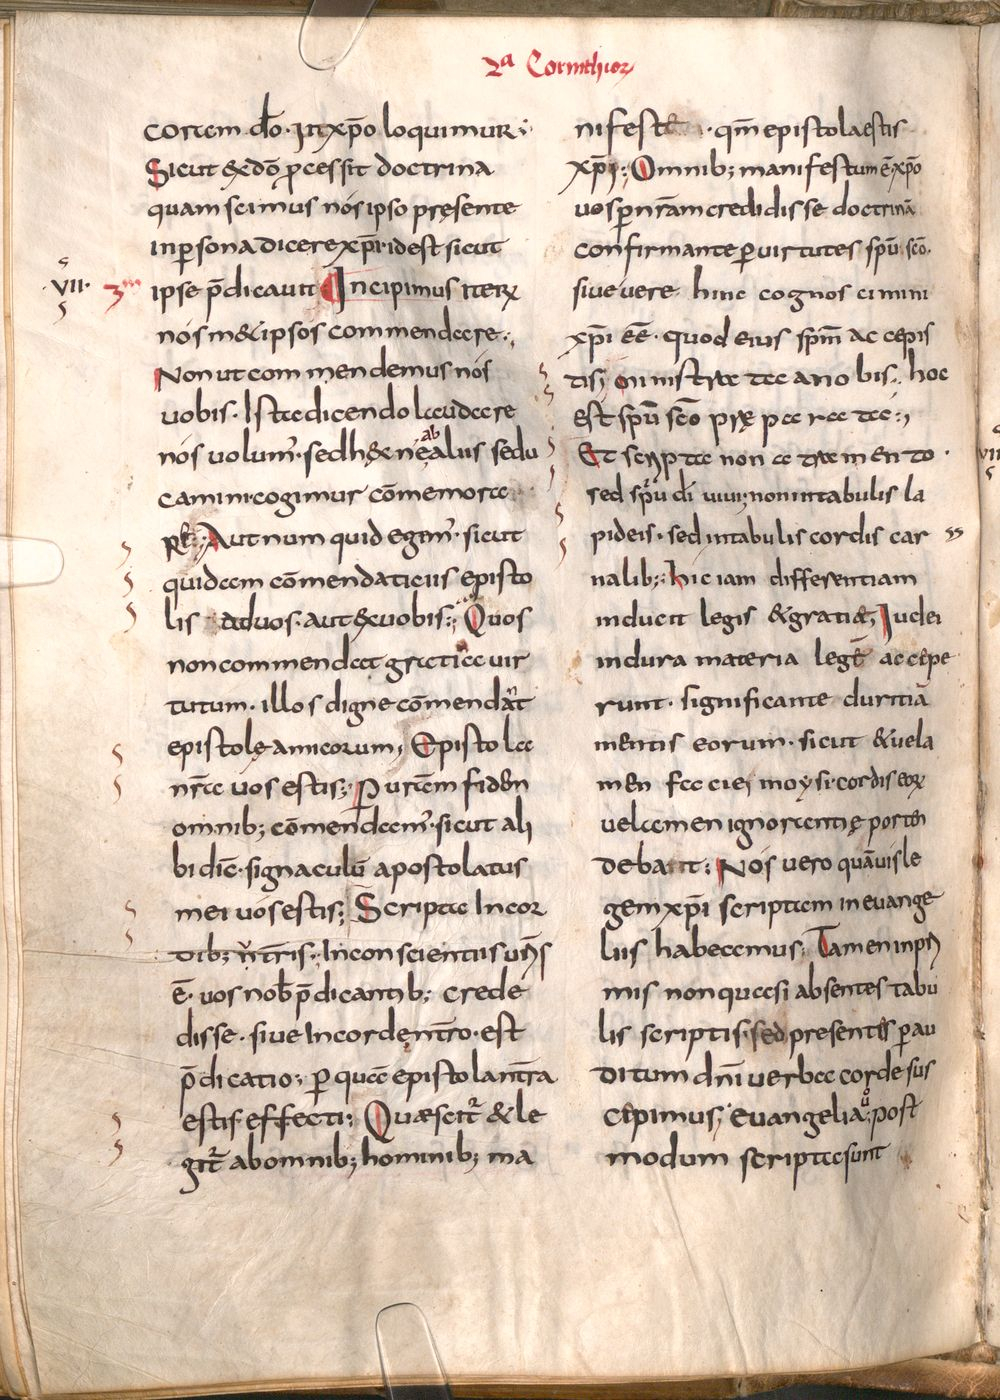 2ᵃ Corinthior
coram dō. In xp̄o loquimur;
Sicut & dō p̄cessit doctrina
quam scimus nós ipso presente
in persona dicere xp̄i id est sicut
.VII. 3 ipse p̄dicauit Incipimus iterū
nós m&ipsos commendare;
Non ut commendemus nós
uobis. Ista dicendo laudare
nós uolum᾽. sed h&c né ab aliis sedu
camini cogimur cōmemora
re; Aut num quid egem᾽. sicut
quidam cōmendaticiis episto
lis ad uos. aut & uobis; Quos
non commendat gratiae uir
tutum. illos digne cōmendant
epistolę amicorum; Epistola
nr̄a uos estis; Puram fiden
omnib; cōmendam᾽. sicut ali
bi dic̄. signaculū apostolatus
mei uós estis; Scripta In cor
dib; nr̄is. In conscientiis ur̄is
ē. uos nob̄ p̄dicantib; crede
disse. siue In corde nr̄o. est
p̄dicatio; per quae epistola nr̄a
estis effecti; Quæ scit᾽ & le
git᾽ ab omnib; hominib; ma
nifesta . qm̄ epistola estis
xp̄i; Omnib; manifestum ē xp̄o
uos per nr̄am credidisse doctrinā
confirmante per uirtutes sp̄u sc̄o.
siue uere hinc cognoscimini
xp̄i eē. quod eius sp̄m accepis
tis; Ministrata a nobis. hoc
est sp̄u sc̄o pręparata;
Et scripta non atramento.
sed sp̄u di uiui; non in tabulis la
pideis. sed in tabulis cordis car
nalib; Hic iam differentiam
inducit legis & gratiæ; Iudei
in dura materia legē accepe
runt. significante duritiā
mentis eorum. sicut & uela
men faciei moysi. cordis eor̄
uelamen ignorantię porten
debant; Nós uero quāuis le
gem xp̄i scriptam in euange
liis habeamus; Tamen in pri
mis non quasi absentes tabu
lis scriptis. sed presentes per au
ditum dn̄i uerba corde sus
cepimus; euangelia u᾽ post
modum scripta sunt